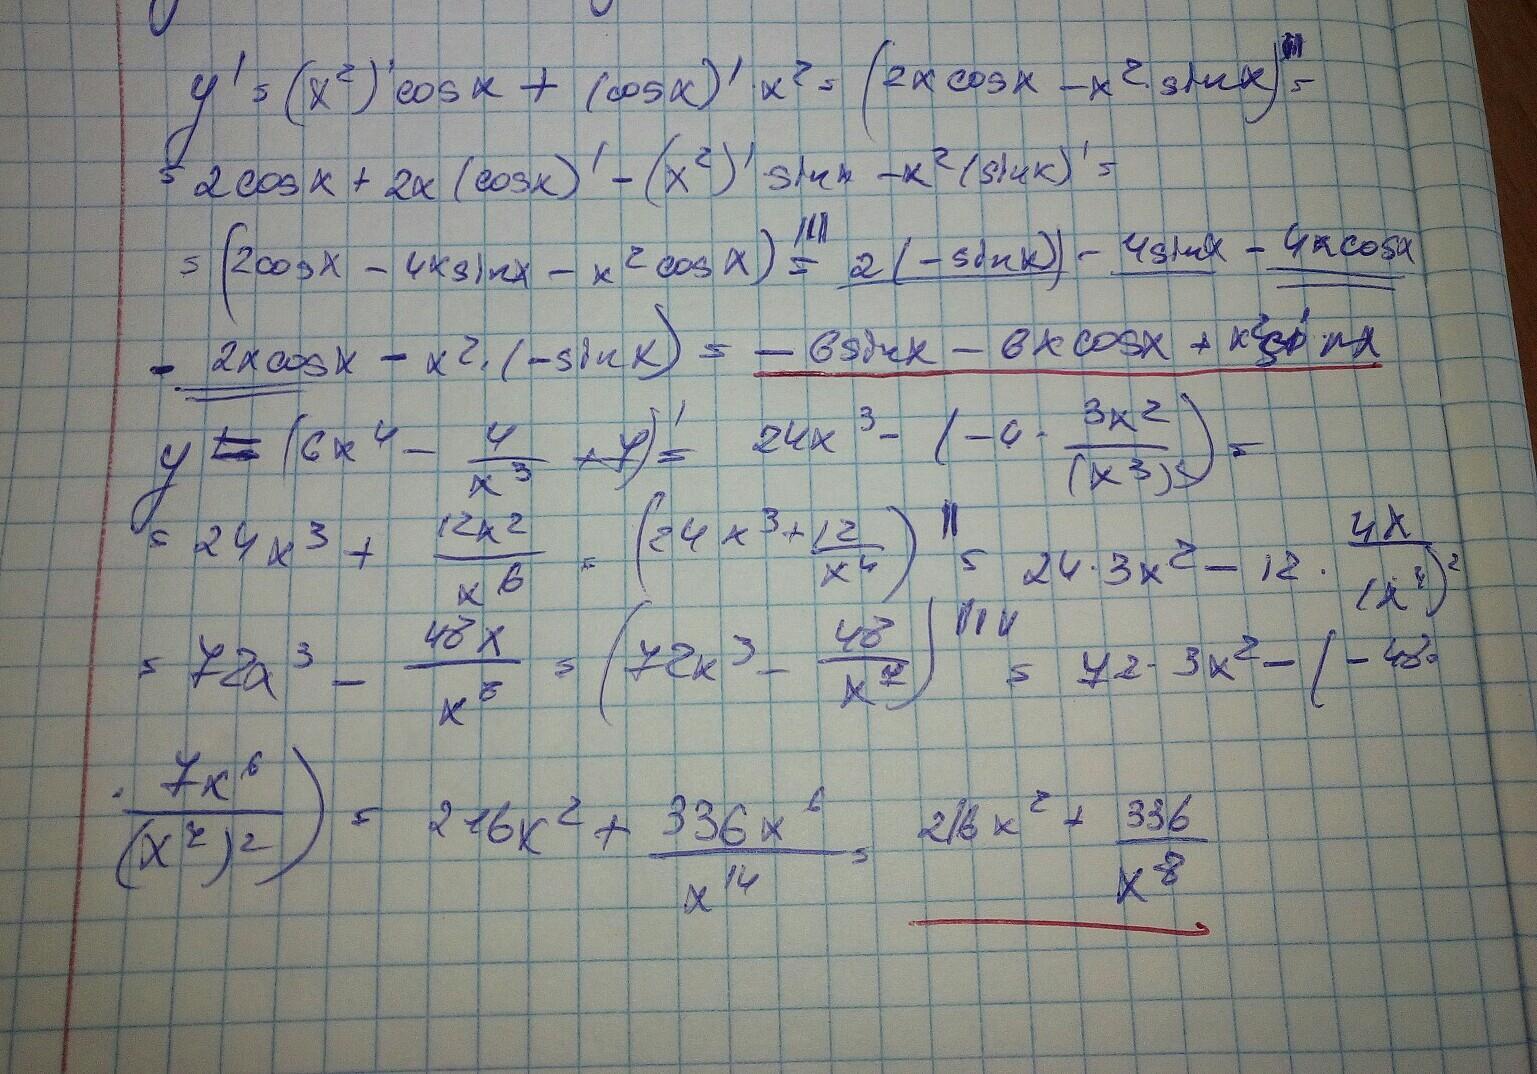 y' = (x²)' cosx + (cosx)' · x² = (2x cosx - x² · sinx)'' =
= 2cosx + 2x (cosx)' - (x²)' sinx - x² (sinx)' =
= (2cosx - 4x sinx - x² cosx)''' = 2(-sinx) - 4sinx - 4x cosx
- 2x cosx - x² · (-sinx) = -6sinx - 6x cosx + x² sinx
y' = (6x⁴ - 4/x³ + 7)' = 24x³ - (-4 · 3x²/(x³)²) =
= 24x³ + 12x²/x⁶ = (24x³ + 12/x⁴)'' = 24 · 3x² - 12 · 4x/(x⁴)²
= 72x³ - 48x/x⁸ = (72x³ - 48/x⁷)''' = 72 · 3x² - (-48 ·
· 7x⁶/(x⁷)²) = 216x² + 336x⁶/x¹⁴ = 216x² + 336/x⁸